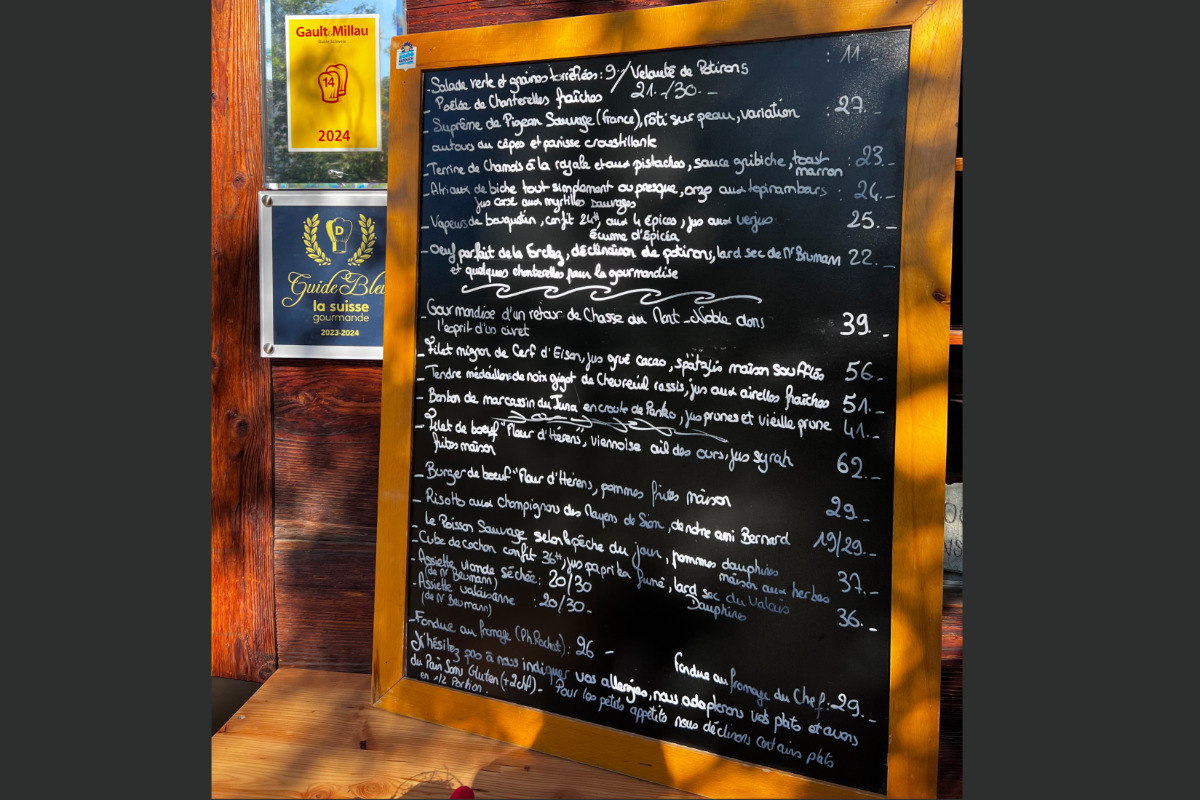 Gault&Millau
14
2024
D
Guide Bleu
la suisse
gourmande
2023-2024
- Salade verte et graines torréfiées : 9.- / Velouté de Potirons : 11.-
- Poêlée de Chanterelles fraîches 21.-/30.-
- Suprême de Pigeon Sauvage (France), rôti sur peau, variation : 27.-
autours du cêpes et panisse croustillante
- Terrine de Chamois à la royale et aux pistaches, sauce gribiche, toast : 23.-
marron
- Atriaux de biche tout simplement ou presque, orzo aux topinambours : 24.-
jus corsé aux myrtilles sauvages
- Vapeurs de bouquetin, confit 24h aux 4 épices, jus aux verjus 25.-
écume d'Epicéa
- Oeuf parfait de la Erdez, déclinaison de potirons, lard sec de Mr Brumann 22.-
et quelques chanterelles pour la gourmandise
- Gourmandise d'un retour de Chasse du Mont-Noble dans 39.-
l'esprit d'un civet
- Filet mignon de Cerf d'Eison, jus grué cacao, spätzlis maison soufflés 56.-
- Tendre médaillon de noix gigot de Chevreuil rassis, jus aux airelles fraîches 51.-
- Bonbon de marcassin du Jura en croute de Panko, jus prunes et vieille prune 41.-
- Filet de boeuf "Fleur d'Hérens", viennoise ail des ours, jus syrah 62.-
frites maison
- Burger de boeuf "Fleur d'Hérens, pommes frites maison 29.-
- Risotto aux Champignons des Mayens de Sion, de notre ami Bernard 19/29.-
- Le Poisson Sauvage selon la pêche du jour, pommes dauphines 37.-
maison aux herbes
- Cube de cochon confit 36h, jus paprika fumé, lard sec du Valais 36.-
Dauphines
- Assiette viande séchée : 20/30
(de Mr Brumann)
- Assiette valaisanne : 20/30.-
(de Mr Brumann)
- Fondue au fromage (Ph. Rochat) : 26.-
Fondue au fromage du Chef : 29.-
N'hésitez pas à nous indiquer vos allergies, nous adapterons vos plats et avons
du Pain Sans Gluten (+2chf) - Pour les petits appétits nous déclinons certains plats
en 1/2 Portion.